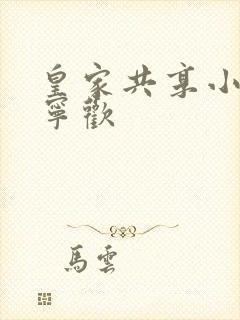 皇家共享小
寧歡
馬雲